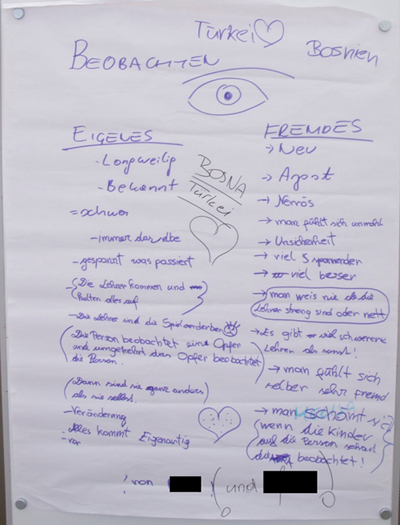 Türkei
Bosnien
BEOBACHTEN
EIGENES
- Langweilig
- Bekannt
= schwer
- immer dasselbe
- gespannt was passiert
- (Die Lehrer kommen und
halten alles auf)
- Die Lehrer sind die Spielverderber
(Die Person beobachtet sine Opfer
und umgekehrt das Opfer beobachtet
die Person.
(Dann sind sie ganz anders
als sie selbst.
- Veränderung
- Alles kommt Eigenartig
- vor
BOSNA
Türkei
FREMDES
→ Neu
→ Angst
→ Nervös
→ man fühlt sich
→ Unsicherheit
→ viel spannender
→ viel besser
→ man weis nie ob die
Lehrer streng sind oder nett
→ es gibt viel schwerere
Lehren als sonst!
→ man fühlt sich
selber sehr fremd
→ man schämt sich
wenn die Kinder
auf die Person schaut
beobachtet!
! von
(und